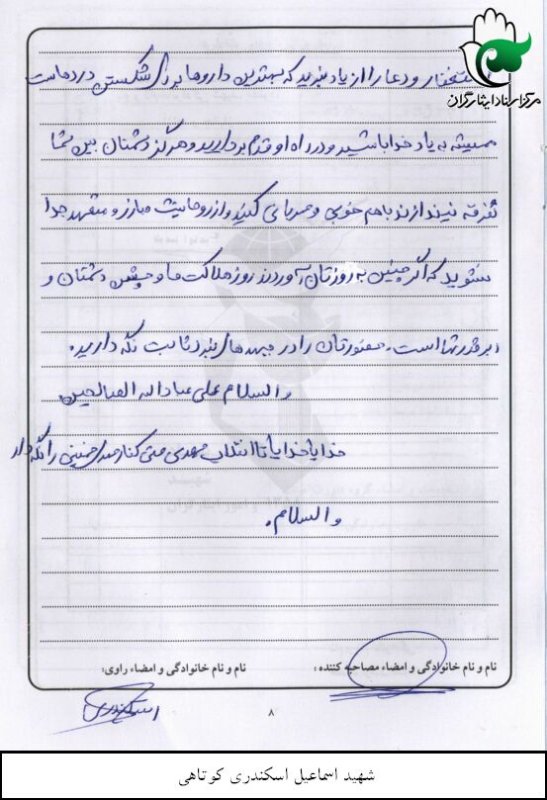 مرکز اسناد ایثارگران
و دعا را از یاد نبرید که بهترین داروها برای شکستن دردهاست
همیشه به یاد خدا باشید و در راه او قدم بردارید و هرگز دشمنان بین شما
تفرقه نیندازند باهم خوبی و مهربانی کنید و از روحانیت مبارز و متعهد جدا
نشوید که اگر چنین به روزتان آوردند روز هلاکت ما و جشن دشمنان و
ابرقدرتها است. حضورتان را در جبهه های نبرد ثابت نگه دارید.
والسلام علی عبادالله الصالحین
خدایا خدایا تا انقلاب مهدی حتی کنار مهدی خمینی را نگه دار
والسلام.
نام و نام خانوادگی و امضاء مصاحبه کننده : نام و نام خانوادگی و امضاء راوی:
اسکندری
۸
شهید اسماعیل اسکندری کوتاهی